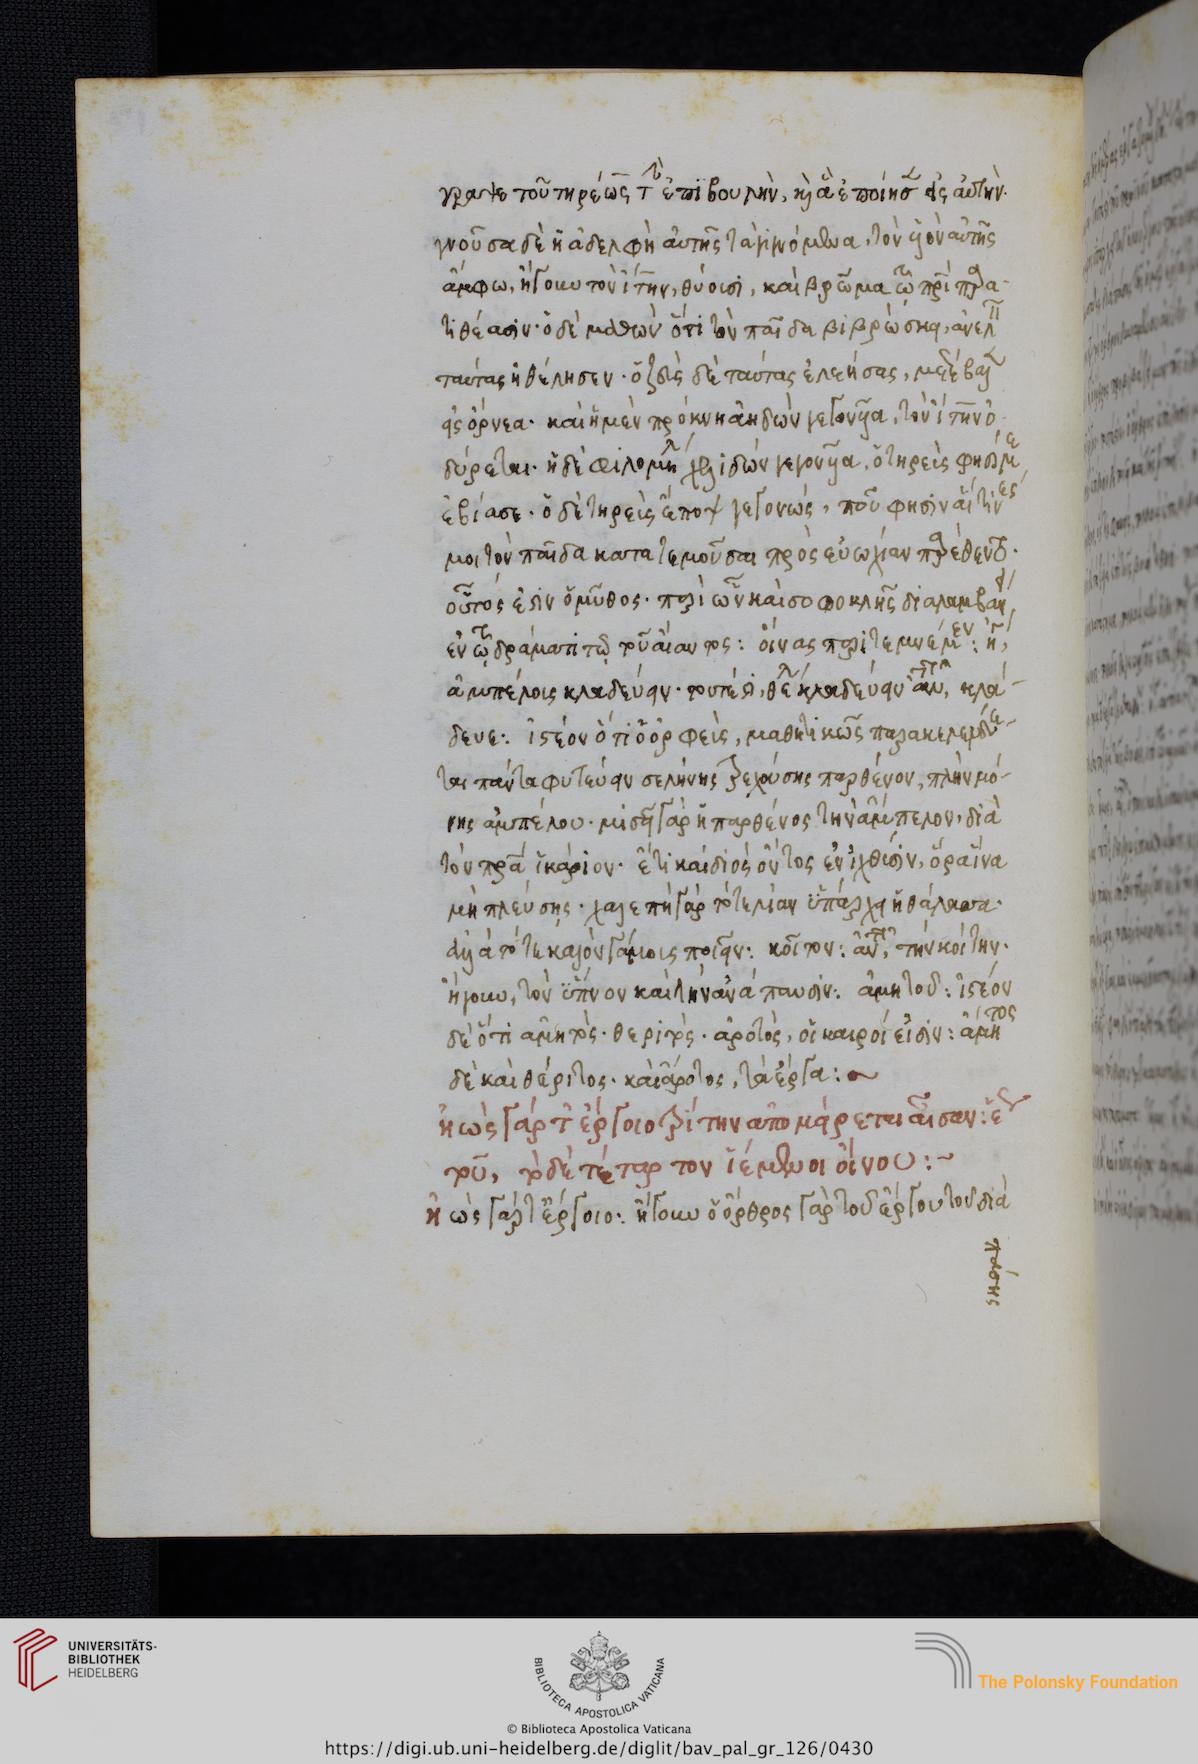 γραψε τοῦ τηρέως τὴν ἐπιβουλὴν, καὶ ἃ ἐποίησεν εἰς αὐτὴν.
γνοῦσα δὲ ἡ ἀδελφὴ αὐτῆς τὰ γινόμενα, τὸν υἱὸν αὐτῆς
ἄμφω, ἤγουν τὸν ἴτυν, θύουσι, καὶ βρῶμα τῷ πατρὶ παρα-
τιθέασιν· ὁ δὲ μαθὼν ὅτι τὸν παῖδα βιβρώσκει, ἀνελεῖν
ταύτας ἠθέλησεν· ὁ ζεὺς δὲ ταύτας ἐλεήσας, μετέβαλεν
εἰς ὄρνεα· καὶ ἡ μὲν πρόκνη ἀηδὼν γεγονυῖα, τὸν ἴτην ὀ-
δύρεται· ἡ δὲ φιλομήλα χελιδὼν γεγονυῖα, ὁ τηρεὺς φησί με
ἐβίασε· ὁ δὲ τηρεὺς ἔποψ γεγονώς, ποῦ φησὶν αἵτινες
μοι τὸν παῖδα κατατεμοῦσαι πρὸς εὐωχίαν παρέθεντο·
οὗτός ἐστιν ὁ μῦθος· περὶ ὧν καὶ σοφοκλῆς διαλαμβάνει
ἐν τῷ δράματι τῷ τοῦ αἴαντος: οἴνας περιτεμνέμεν: ἤ,
ἀμπέλους κλαδεύειν· τουτέστι, θέλε κλαδεύειν ἀντὶ, κλά-
δευε: ἰστέον ὅτι ὁ ὀρφεὺς, μαθητικῶς παρακελεύε-
ται πάντα φυτεύειν σελήνης τρεχούσης παρθένον, πλὴν μό-
νης ἀμπέλου· μισεῖ γὰρ ἡ παρθένος τὴν ἄμπελον, διὰ
τὸν πατέρα ἰκάριον· ἔτι καὶ διὸς ὄντος ἐν ἰχθύσιν, ὅρα ἵνα
μὴ πλεύσης· χαλεπὴ γὰρ τότε λίαν ὑπάρχει ἡ θάλασσα·
ἀλλὰ τότε καλὸν γάμους ποιεῖν: κοῖτον: ἀντὶ, τὴν κοίτην·
ἤγουν, τὸν ὕπνον καὶ τὴν ἀνάπαυσιν: ἀμητοῦ: ἰστέον
δὲ ὅτι ἀμητὸς· θεριτὸς· ἀροτὸς, οἱ καιροί εἰσιν: ἄμητος
δὲ καὶ θέριτος· καὶ ἄροτος, τὰ ἔργα:
ἠὼς γάρ τ' ἔργοιο τρίτην ἀπομείρεται αἶσαν: ἕως
τοῦ, τὸ δὲ τέταρτον ἱέμεν οἴνου:
ἠὼς γάρ τ' ἔργοιο: ἤγουν ὁ ὄρθρος γὰρ τοῦ ἔργου τοῦ διὰ